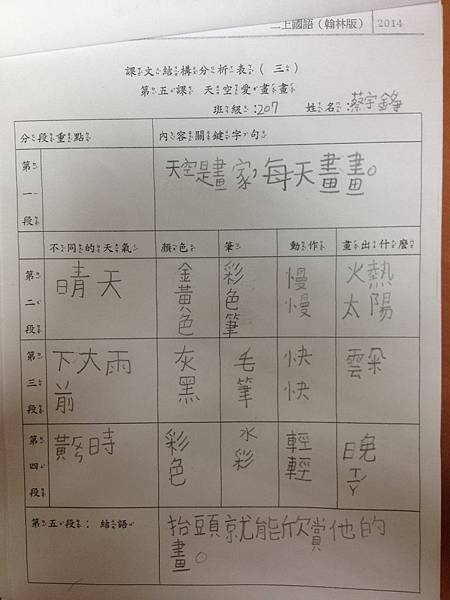 二上國語（翰林版） 2014
課文結構分析表（三）
第五課 天空愛畫畫
班級:207 姓名:蔡宇錚
分段重點 內容關鍵字句
第一段 天空是畫家，每天畫畫。
不同的天氣 顏色 筆 動作 畫出什麼
第二段 晴天 金黃色 彩色筆 慢慢 火熱太陽
第三段 下大雨前 灰黑 毛筆 快快 雲朵
第四段 黃ㄏㄨㄣ時 彩色 水彩 輕輕 晚ㄒㄧㄚˊ
第五段：結語 抬頭就能欣賞他的
畫。